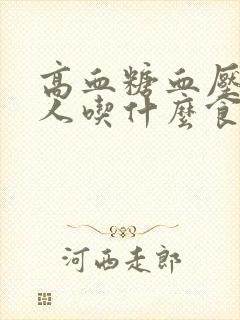 高血糖血壓
人喫什麼食
河西走郎